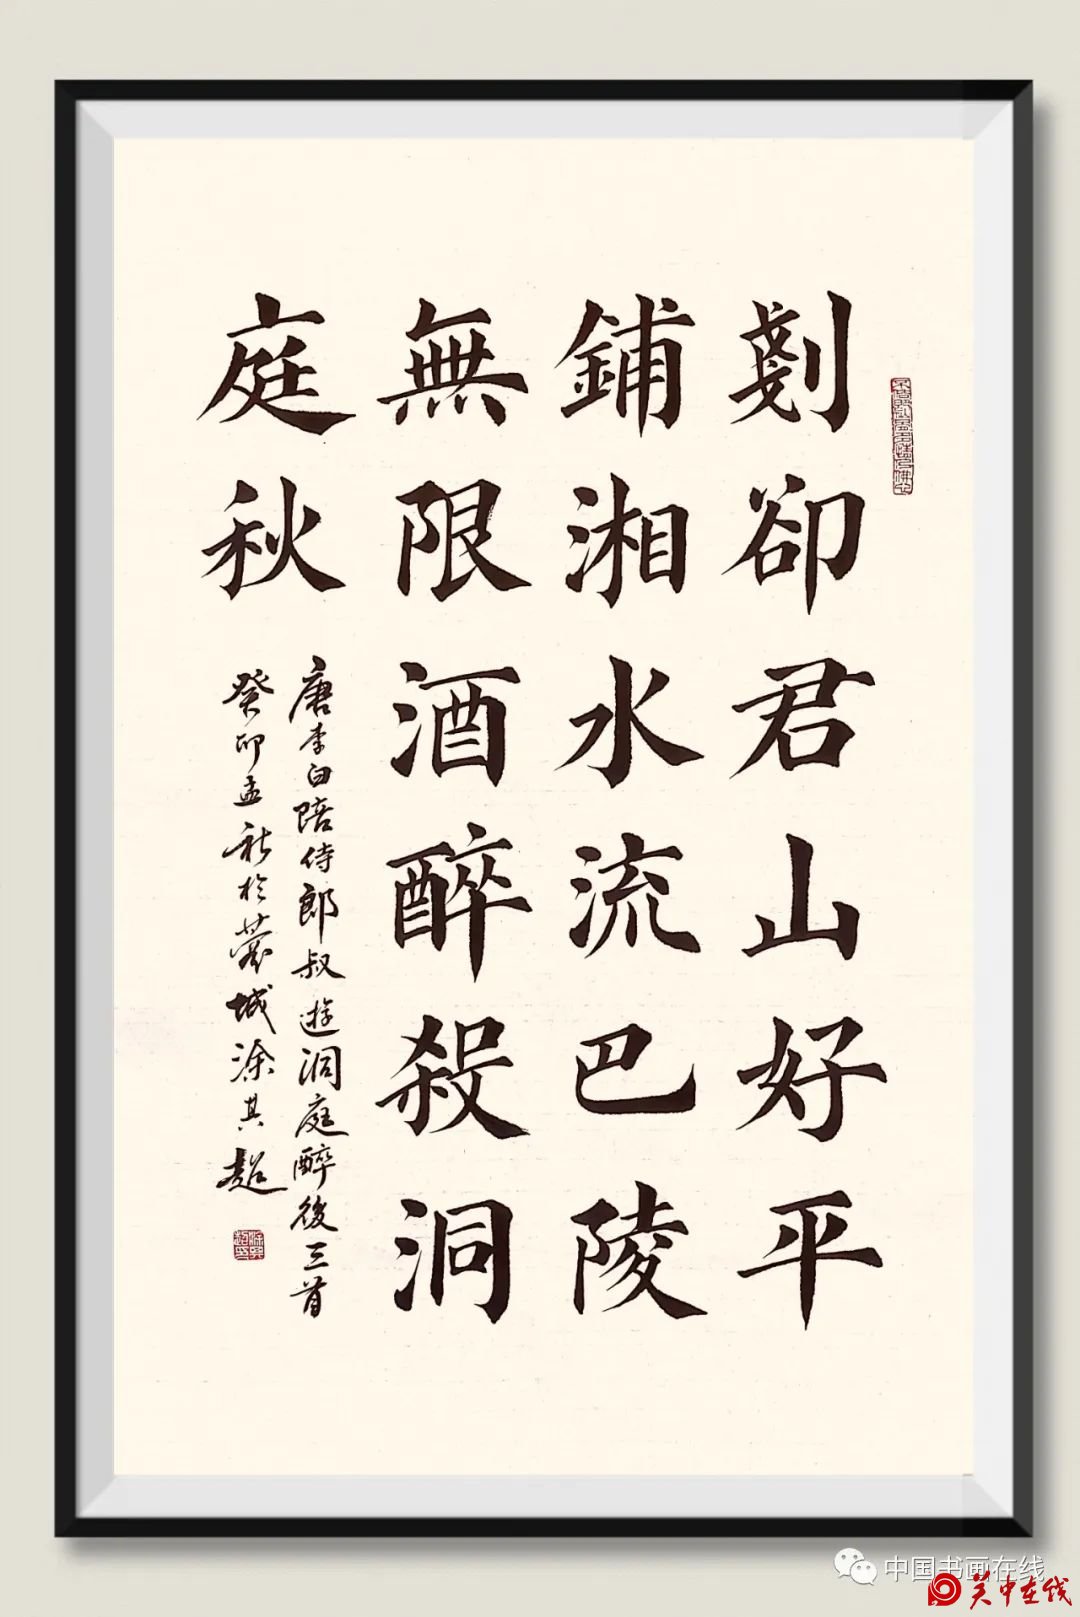 剗卻君山好平
鋪湘水流巴陵
無限酒醉殺洞
庭秋
唐李白陪侍郎叔遊洞庭醉後三首
癸卯孟秋於城涂其超
中国书画在线
关中在线